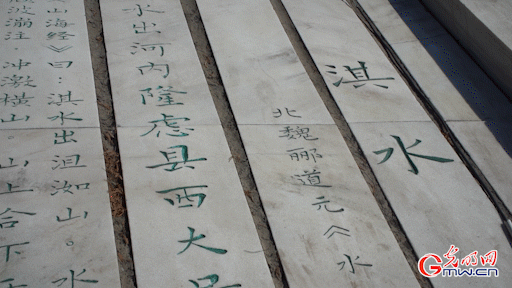 淇水
北魏郦道元《水
水出河内隆虑县西大
山海经》曰：淇水出沮洳山。水
波漰注，冲激横山。山上合下
光明网
GMW.cn